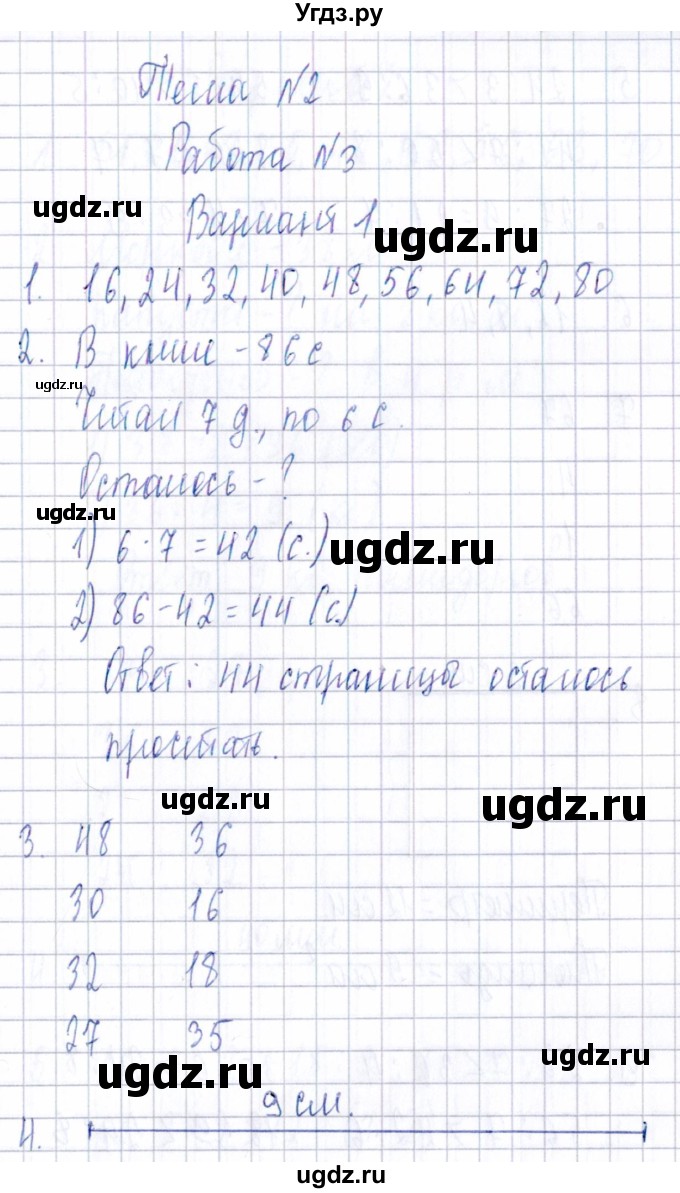 Угдз.ру
Тема №2
Работа №3
Вариант 1
ugdz.ru
ugdz.ru
1. 16, 24, 32, 40, 48, 56, 64, 72, 80
2. В книге - 86 с
ugdz.ru
Читал 7 д., по 6 с.
Осталось - ?
ugdz.ru
1) 6 · 7 = 42 (с.)
ugdz.ru
2) 86 - 42 = 44 (с.)
Ответ: 44 страницы осталось
прочитать.
ugdz.ru
ugdz.ru
3. 48 36
30 16
32 18
27 35
ugdz.ru
ugdz.ru
9 см.
4.
ugdz.ru